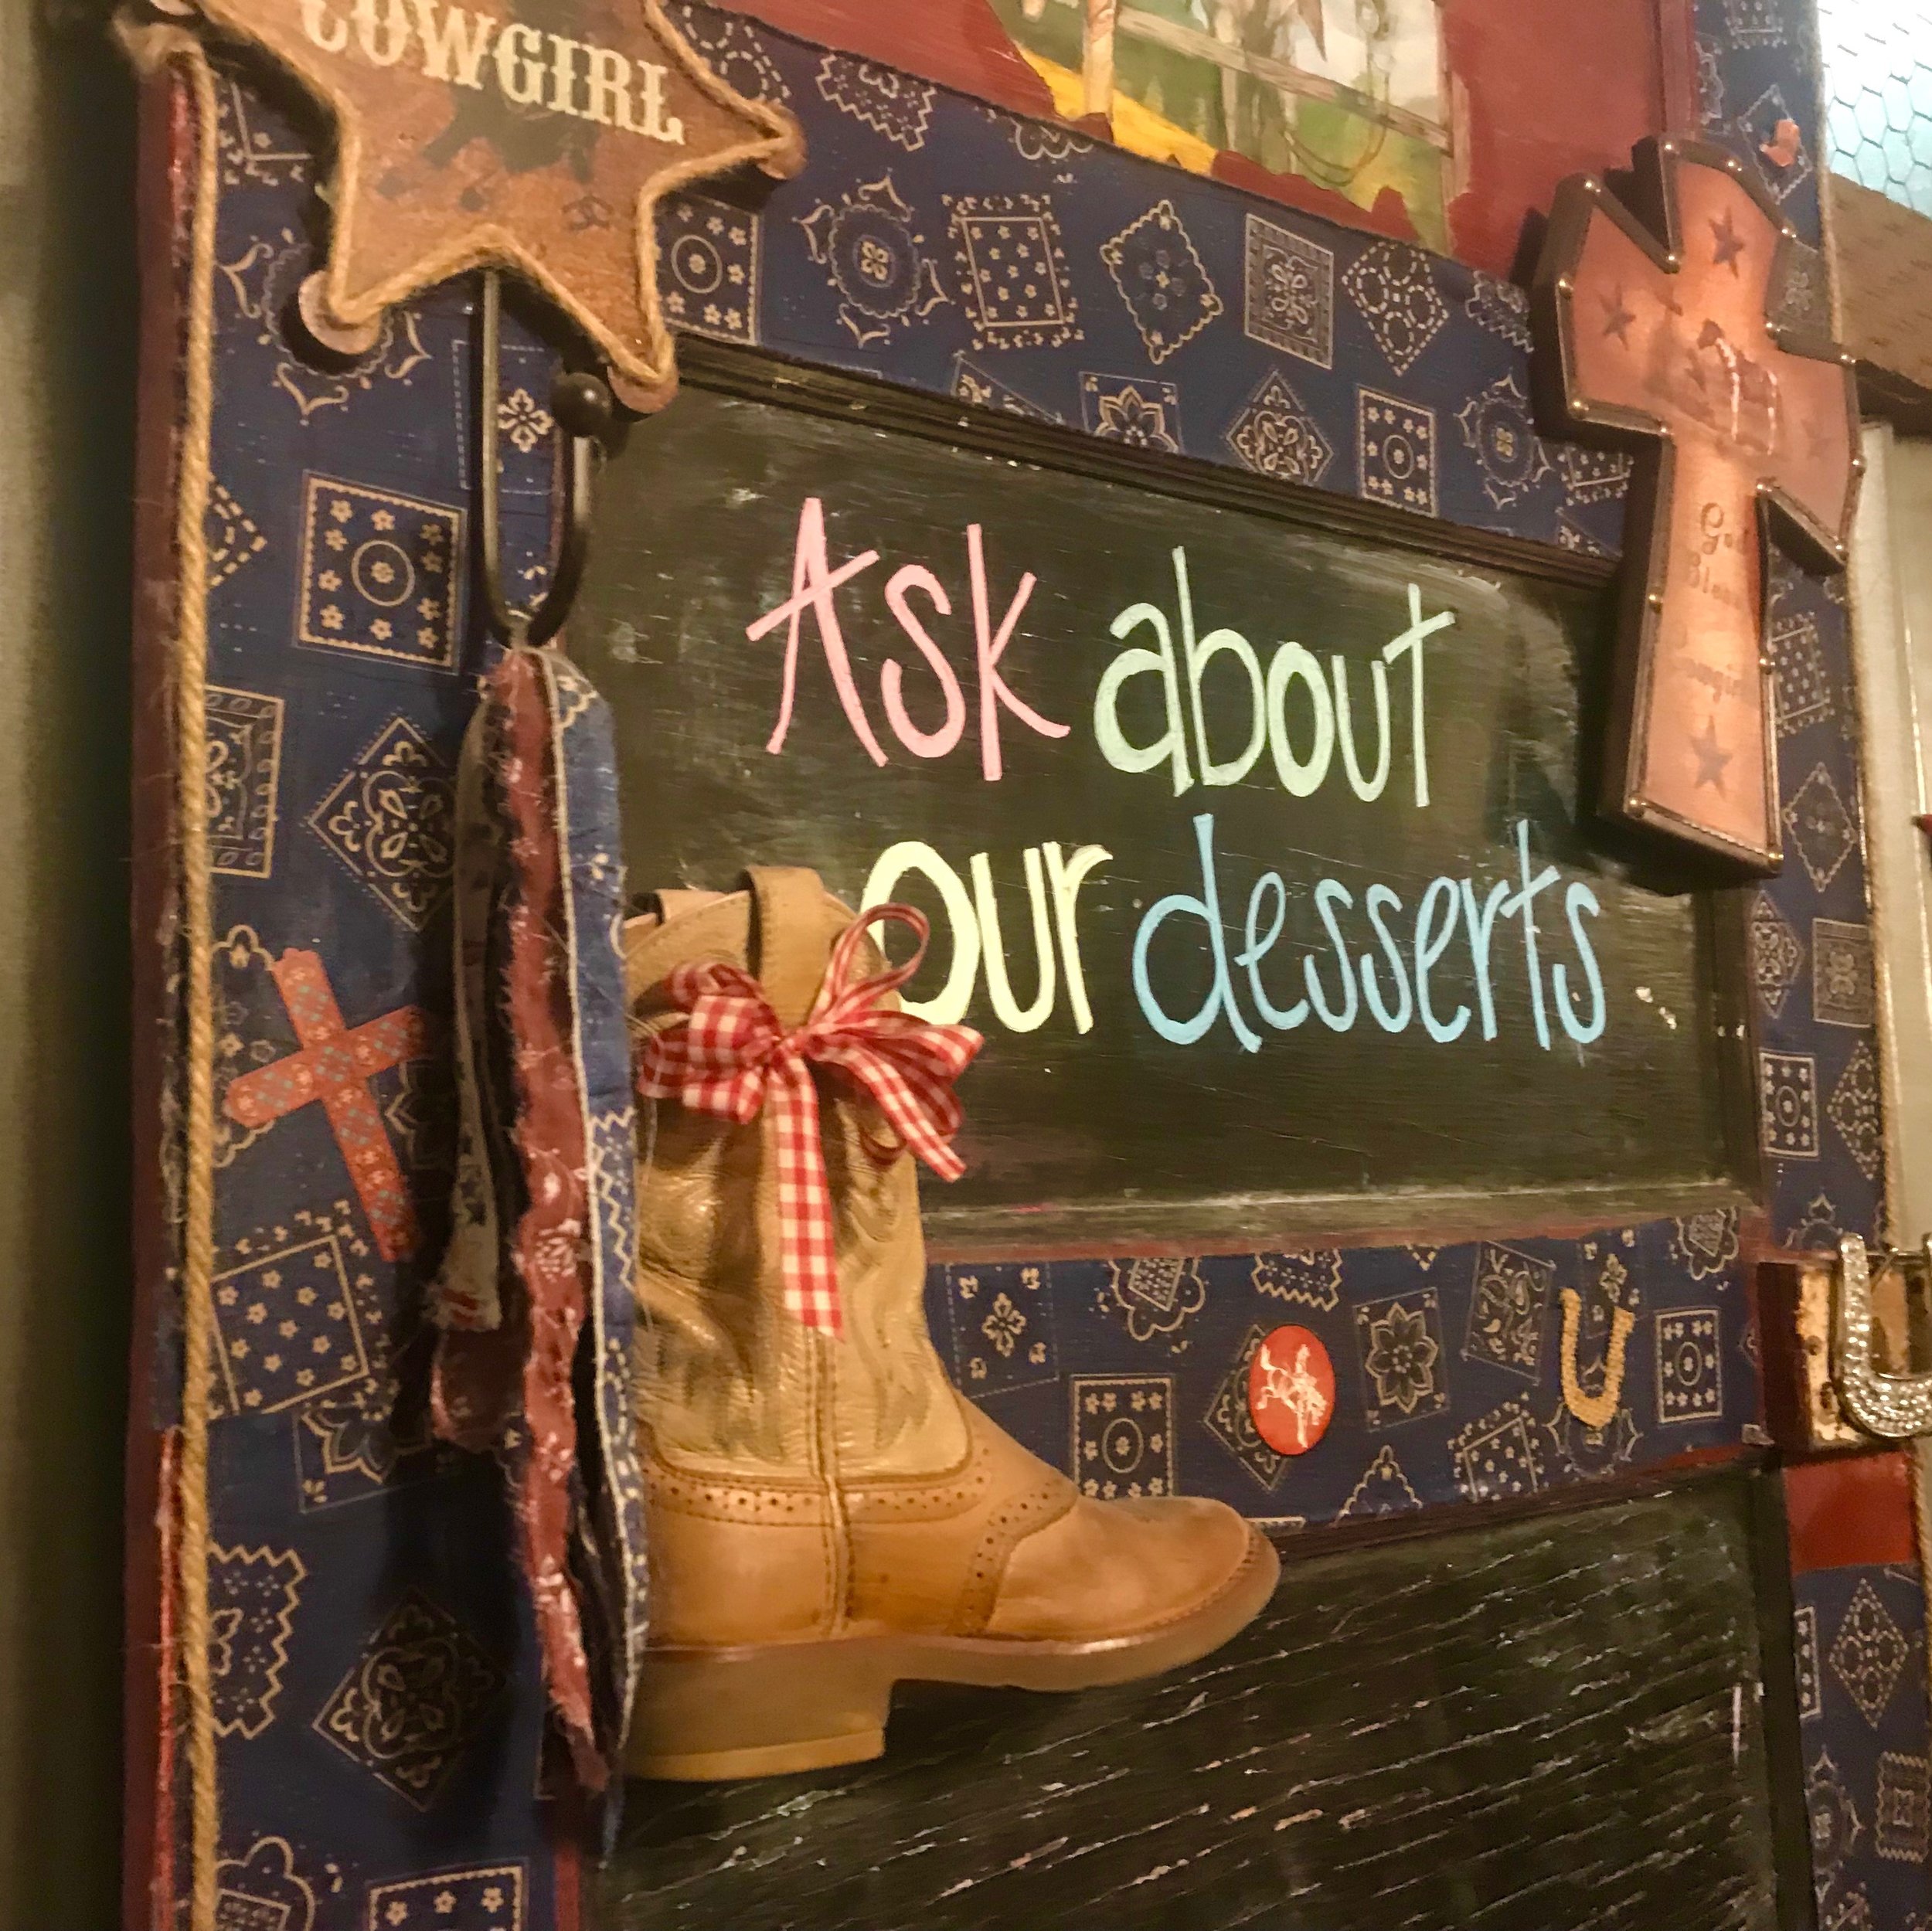 COWGIRL
Ask about
our desserts
God
Bless